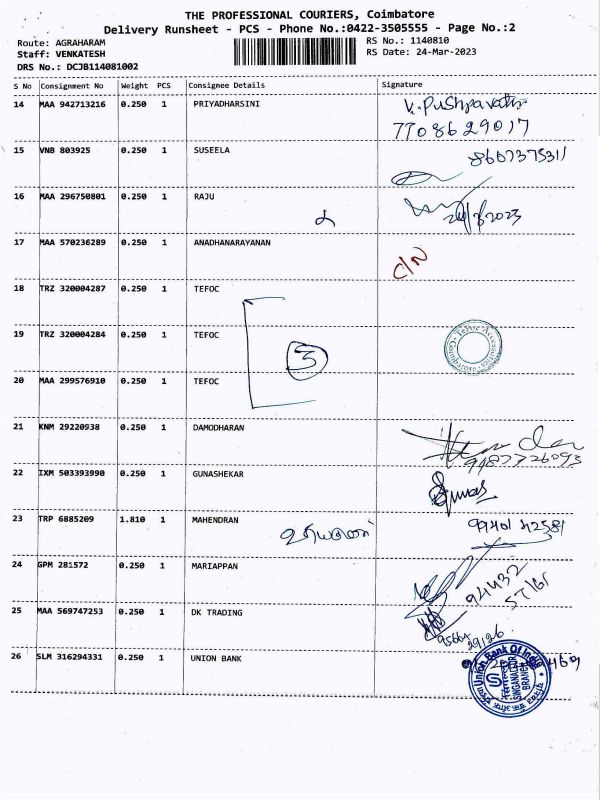 THE PROFESSIONAL COURIERS, Coimbatore
Delivery Runsheet - PCS - Phone No.:0422-3505555 - Page No.:2
Route: AGRAHARAM
RS No.: 1140810
Staff: VENKATESH
RS Date: 24-Mar-2023
DRS No.: DCJB114081002
S No Consignment No Weight PCS Consignee Details Signature
14 MAA 942713216 0.250 1 PRIYADHARSINI V. Pushpavathi
7708629017
15 VNB 803925 0.250 1 SUSEELA 8607375311
16 MAA 296750801 0.250 1 RAJU
17 MAA 570236289 0.250 1 ANADHANARAYANAN C/N
18 TRZ 320004287 0.250 1 TEFOC
19 TRZ 320004284 0.250 1 TEFOC
3
20 MAA 299576910 0.250 1 TEFOC
21 KNM 29220938 0.250 1 DAMODHARAN
9487726093
22 IXM 503393990 0.250 1 GUNASHEKAR
23 TRP 6885209 1.810 1 MAHENDRAN
24 GPM 281572 0.250 1 MARIAPPAN 94432
57161
25 MAA 569747253 0.250 1 DK TRADING 95664
29126
26 SLM 316294331 0.250 1 UNION BANK Union Bank Of India
SINGANALLUR
BRANCH